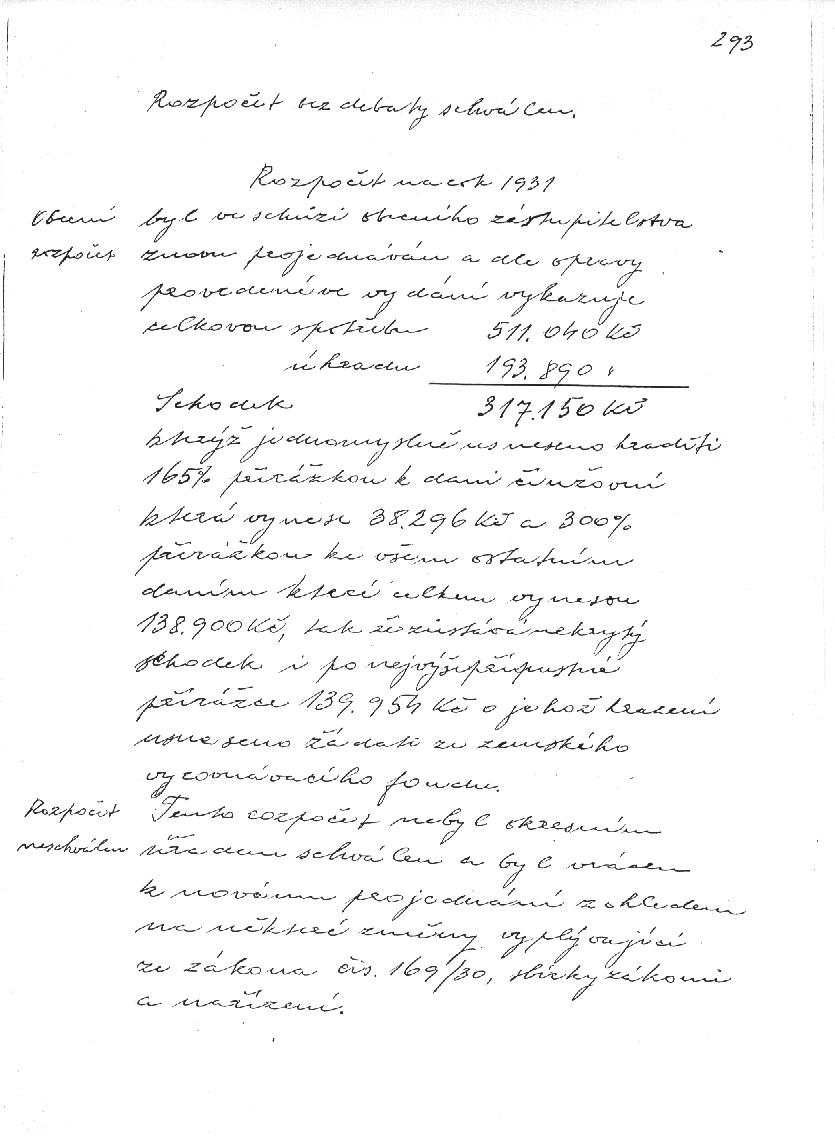 293
Rozpočet bez debaty schválen.
Rozpočet na rok 1931
Obecní
rozpočet
byl ve schůzi obecního zastupitelstva
znovu projednáván a dle opravy
provedené ve vydání vykazuje
celkovou spotřebu 511.040 Kč
úhradu 193.890 "
Schodek 317.150 Kč
kterýž jednomyslně usneseno hraditi
165% přirážkou k dani činžovní
která vynese 38.296 Kč a 300%
přirážkou ke všem ostatním
daním které celkem vynesou
138.900 Kč, tak že zůstává nekrytý
schodek i po nejvýše přípustné
přirážce 139.954 Kč o jehož hrazení
usneseno žádati ze zemského
vyrovnávacího fondu.
Rozpočet
neschválen
Tento rozpočet nebyl okresním
úřadem schválen a byl vrácen
k novému projednání z ohledem
na některé změny vyplývající
ze zákona čís. 169/30, sbírky zákonů
a nařízení.